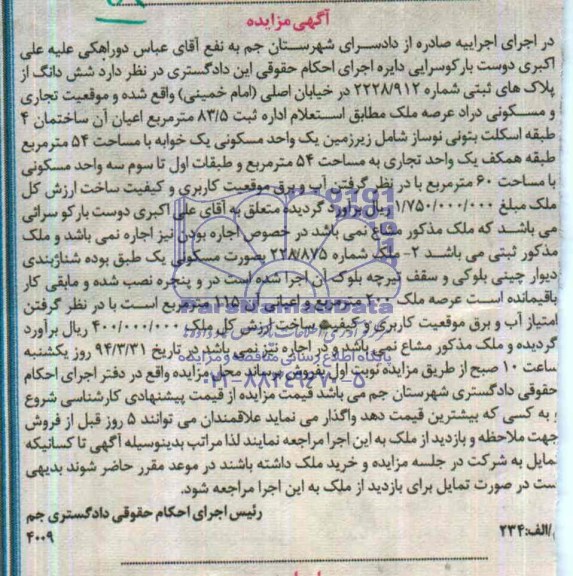 آگهی مزایده
در اجرای اجراییه صادره از دادسرای شهرستان جم به نفع آقای عباس دوراهکی علیه علی
اکبری دوست بارکوسرایی دایره اجرای احکام حقوقی این دادگستری در نظر دارد شش دانگ از
پلاک های ثبتی شماره ۲۲۲۸/۹۱۲ در خیابان اصلی (امام خمینی) واقع شده و موقعیت تجاری
و مسکونی دراد عرصه ملک مطابق استعلام اداره ثبت ۸۳/۵ مترمربع اعیان آن ساختمان ۴
طبقه اسکلت بتونی نوساز شامل زیرزمین یک واحد مسکونی یک خوابه با مساحت ۵۴ مترمربع
طبقه همکف یک واحد تجاری به مساحت ۵۴ مترمربع و طبقات اول تا سوم سه واحد مسکونی
با مساحت ۶۰ مترمربع با در نظر گرفتن آب و برق موقعیت کاربری و کیفیت ساخت ارزش کل
ملک مبلغ ۱/۷۵۰/۰۰۰/۰۰۰ ریال برآورد گردیده متعلق به آقای علی اکبری دوست بارکو سرائی
می باشد که ملک مذکور مشاع نمی باشد در خصوص اجاره بودن نیز اجاره نمی باشد و ملک
مذکور ثبتی می باشد ۲- ملک شماره ۲۲۸/۸۷۵ بصورت مسکونی یک طبق بوده شناژبندی
دیوار چینی بلوکی و سقف تیرچه بلوک آن اجرا شده است در و پنجره نصب شده و مابقی کار
باقیمانده است عرصه ملک ۲۰۰ مترمربع و اعیانی آن ۱۱۵ مترمربع است با در نظر گرفتن
امتیاز آب و برق موقعیت کاربری و کیفیت ساخت ارزش کل ملک ۴۰۰/۰۰۰/۰۰۰ ریال برآورد
گردیده و ملک مذکور مشاع نمی باشد و در اجاره نیز نمی باشد در تاریخ ۹۴/۳/۳۱ روز یکشنبه
ساعت ۱۰ صبح از طریق مزایده نوبت اول بفروش برساند محل مزایده واقع در دفتر اجرای احکام
حقوقی دادگستری شهرستان جم می باشد قیمت مزایده از قیمت پیشنهادی کارشناسی شروع
و به کسی که بیشترین قیمت دهد واگذار می نماید علاقمندان می توانند ۵ روز قبل از فروش
جهت ملاحظه و بازدید از ملک به این اجرا مراجعه نمایند لذا مراتب بدینوسیله آگهی تا کسانیکه
تمایل به شرکت در جلسه مزایده و خرید ملک داشته باشند در موعد مقرر حاضر شوند بدیهی
ست در صورت تمایل برای بازدید از ملک به این اجرا مراجعه شود.
رئیس اجرای احکام حقوقی دادگستری جم
/الف:۲۳۴
۴۰۰۹
ParsNamadData
پایگاه اطلاع رسانی مناقصه و مزایده
۰۲۱-۸۸۳۴۹۶۷۰-۵